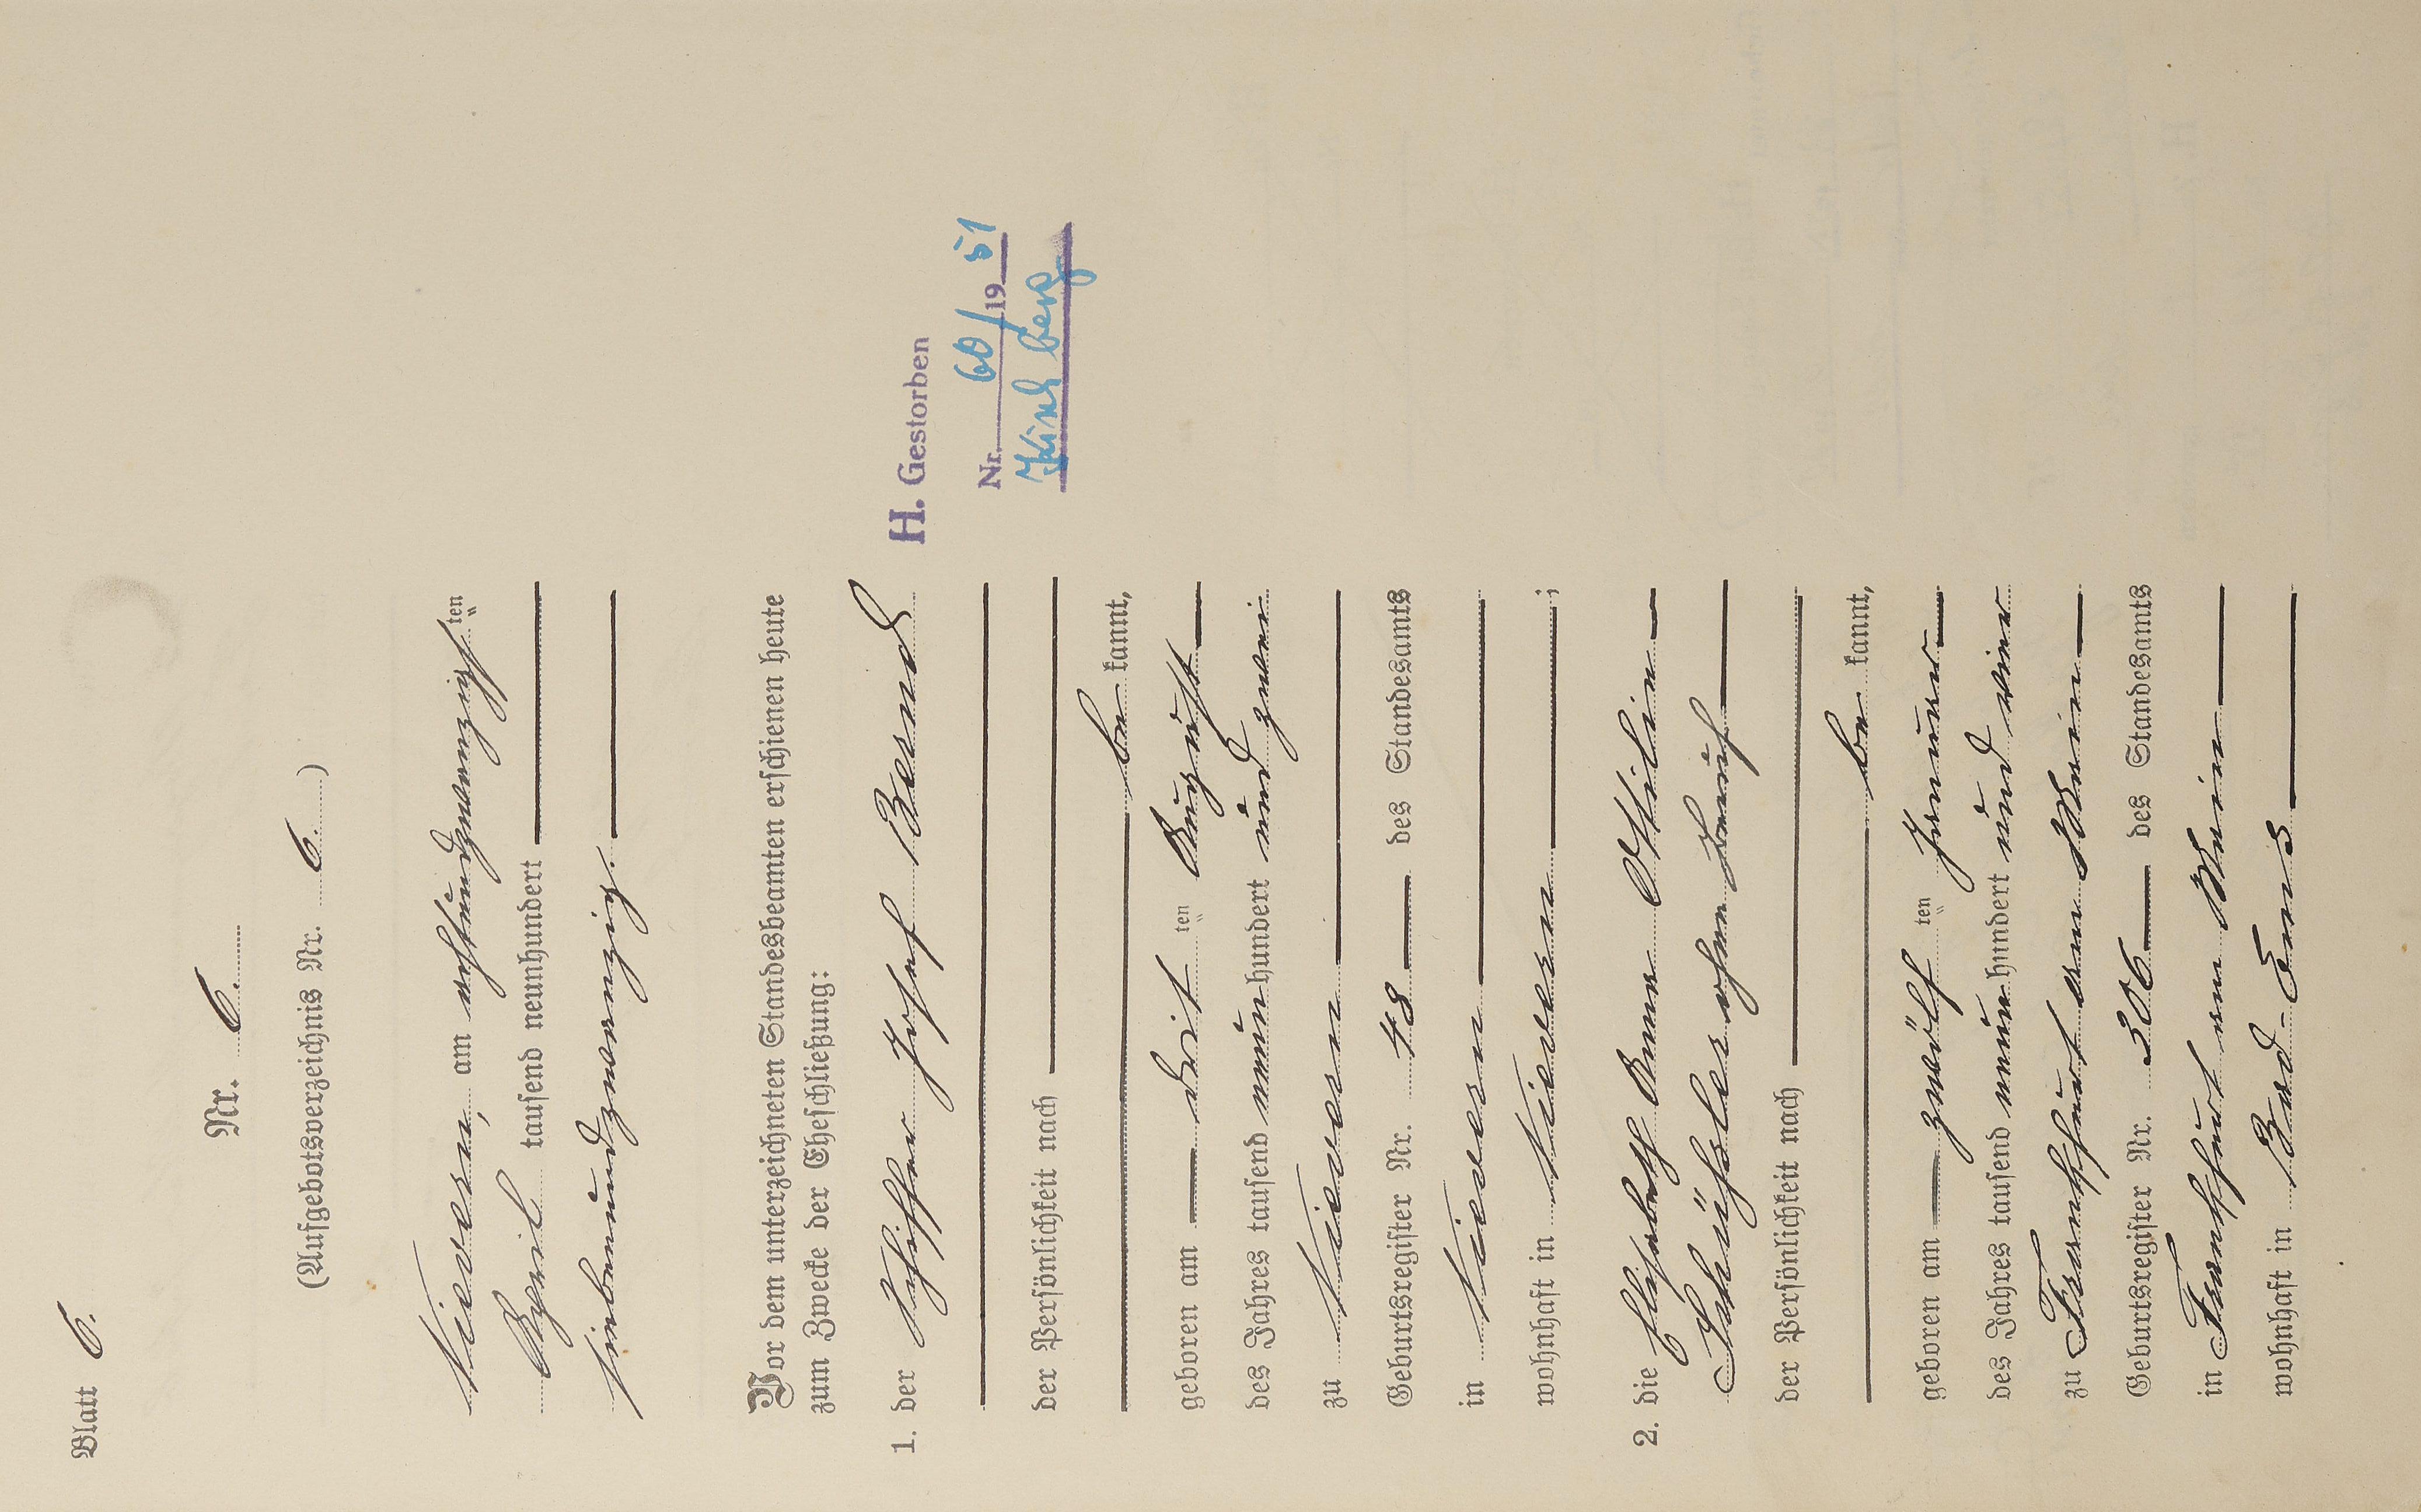 Blatt 6.
Nr. 6.
(Aufgebotsverzeichnis Nr. 6.)
Nievern, am achtundzwanzigsten
April tausend neunhundert
siebenundzwanzig.
Vor dem unterzeichneten Standesbeamten erschienen heute
zum Zwecke der Eheschließung:
1. der Schiffer Josef Bernd
H. Gestorben
Nr. 60/1951
der Persönlichkeit nach
be kannt,
geboren am dritten August
des Jahres tausend neun hundert und zwei
zu Nievern
Geburtsregister Nr. 48 des Standesamts
in Nievern
wohnhaft in Nievern;
2. die Elisabeth Anna Ottilie
ohne Beruf
der Persönlichkeit nach
be kannt,
geboren am zwölften Januar
des Jahres tausend neun hundert und vier
zu Frankfurt am Main
Geburtsregister Nr. 306 des Standesamts
in Frankfurt am Main
wohnhaft in Bad-Ems